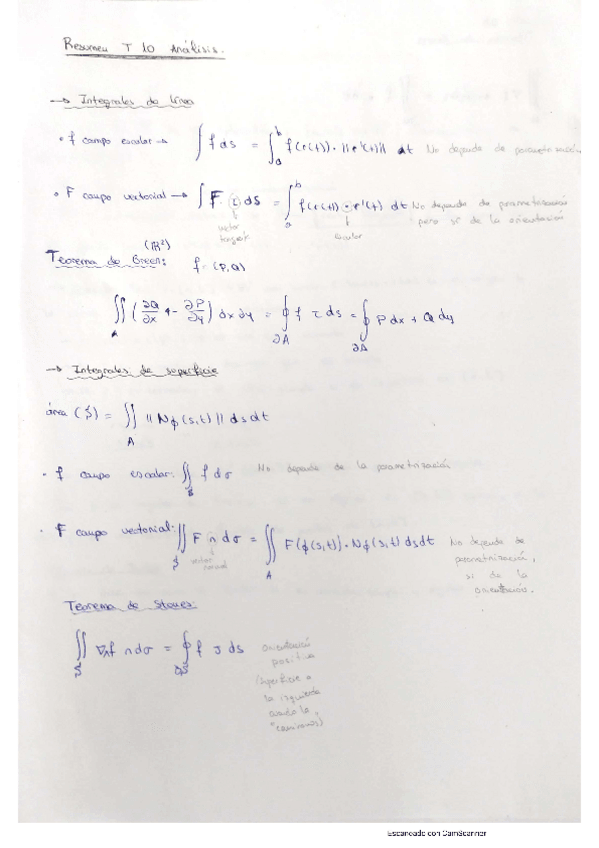 Resumen T 10 Análisis.
→ Integrales de línea
• f campo escalar → ∫ f ds = ∫_a^b f(r(t)) · ||r'(t)|| dt No depende de parametrización
• F campo vectorial → ∫ F · τ ds = ∫_a^b f(r(t)) · r'(t) dt No depende de parametrización
pero si de la orientación
vector tangente
escalar
(ℝ²)
Teorema de Green: f = (P, Q)
∬_A (∂Q/∂x - ∂P/∂y) dx dy = ∮_∂A f τ ds = ∮_∂A P dx + Q dy
→ Integrales de superficie
área (S) = ∬_A || Nϕ (s,t) || ds dt
• f campo escalar: ∬_S f dσ No depende de la parametrización
• F campo vectorial: ∬_S F n dσ = ∬_A F(ϕ(s,t)) · Nϕ(s,t) ds dt No depende de
parametrización,
si de la
orientación.
vector normal
Teorema de Stokes
∬_S ∇∧f n dσ = ∮_∂S f τ ds orientación
positiva
(superficie a
la izquierda
cuando la
"caminamos")
Escaneado con CamScanner